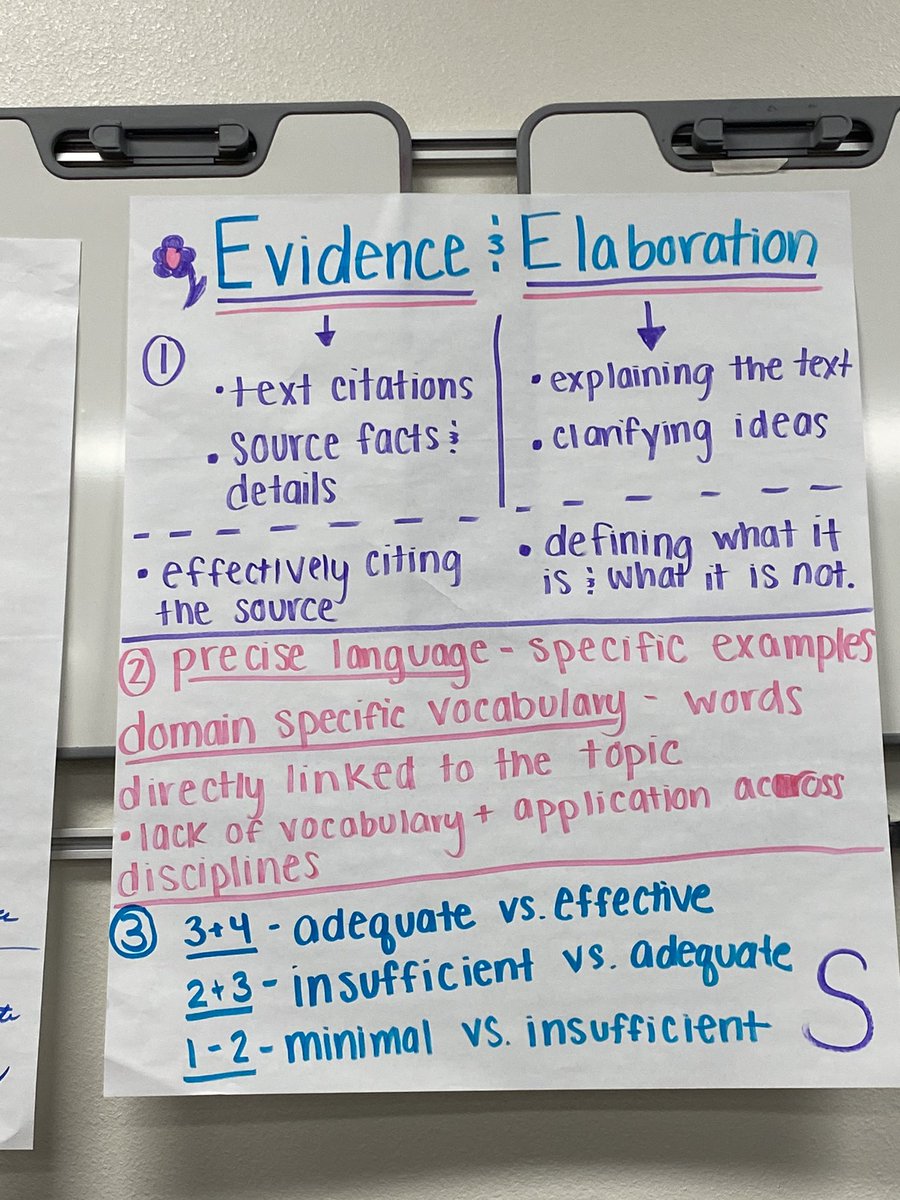 Evidence & Elaboration
①
• text citations
• source facts &
details
• effectively citing
the source
• explaining the text
• clarifying ideas
• defining what it
is & what it is not.
② precise language - specific examples
domain specific vocabulary - words
directly linked to the topic
• lack of vocabulary + application across
disciplines
③ 3+4 - adequate vs. effective
2+3 - insufficient vs. adequate
1-2 - minimal vs. insufficient
S